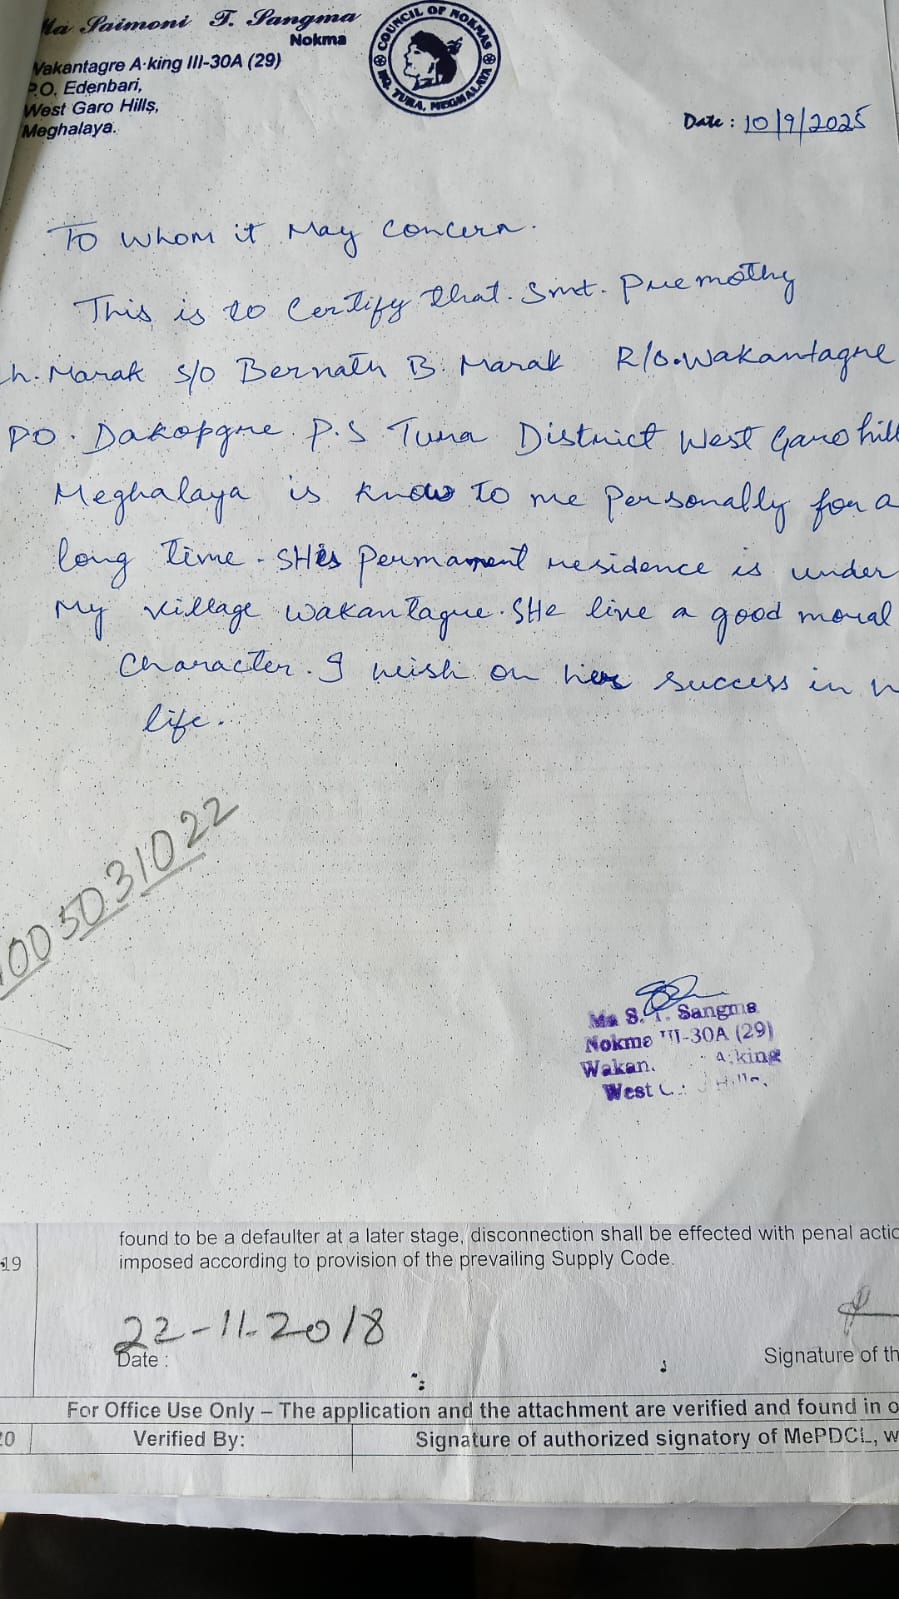 Ma Saimoni T. Sangma
Nokma
Wakantagre A·king III-30A (29)
P.O. Edenbari,
West Garo Hills,
Meghalaya.
COUNCIL OF NOKMAS
HQ. TURA, MEGHALAYA
Date : 10/9/2025
To whom it May Concern.
This is to Certify that. Smt. Premothy
Ch. Marak S/o Bernath B. Marak R/o. Wakantagre
PO. Dakopgre. P.S Tura District West Garo hill
Meghalaya is know to me personally for a
long time. SHis permanent residence is under
My village wakantagre. SHe live a good moral
Character. I wish on her success in
life.
1005031022
Ma S. T. Sangma
Nokma III-30A (29)
Wakan. A·king
West
19
found to be a defaulter at a later stage, disconnection shall be effected with penal actio
imposed according to provision of the prevailing Supply Code.
22-11-2018
Date :
Signature of th
For Office Use Only – The application and the attachment are verified and found in o
20 Verified By: Signature of authorized signatory of MePDCL, w